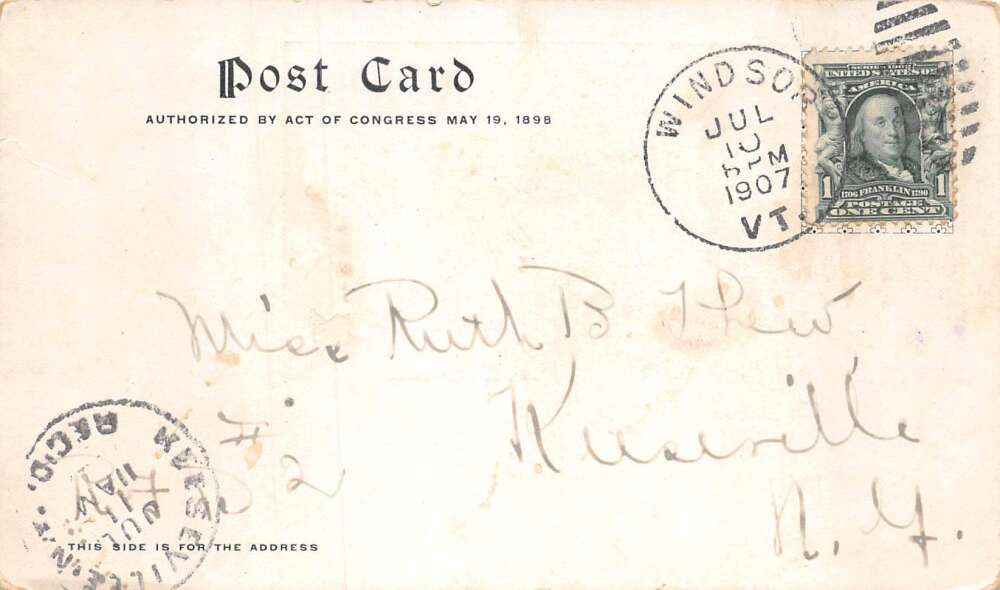 Post Card
AUTHORIZED BY ACT OF CONGRESS MAY 19, 1898
WINDSOR
JUL
10
PM
1907
VT.
SERIES 1902
UNITED STATES OF
AMERICA
1 1706 FRANKLIN 1790 1
POSTAGE
ONE CENT
Miss Ruth B. Thew
Keeseville
N. Y.
R F D # 2
KEESEVILLE N.Y.
REC'D.
JUL
11
AM
THIS SIDE IS FOR THE ADDRESS